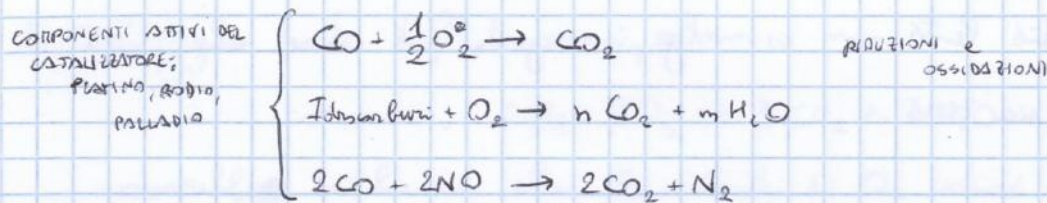 COMPONENTI ATTIVI DEL
CATALIZZATORE:
PLATINO, RODIO,
PALLADIO
CO + 1/2 O₂ → CO₂
Idrocarburi + O₂ → n CO₂ + m H₂O
2CO + 2NO → 2CO₂ + N₂
RIDUZIONI e
OSSIDAZIONI